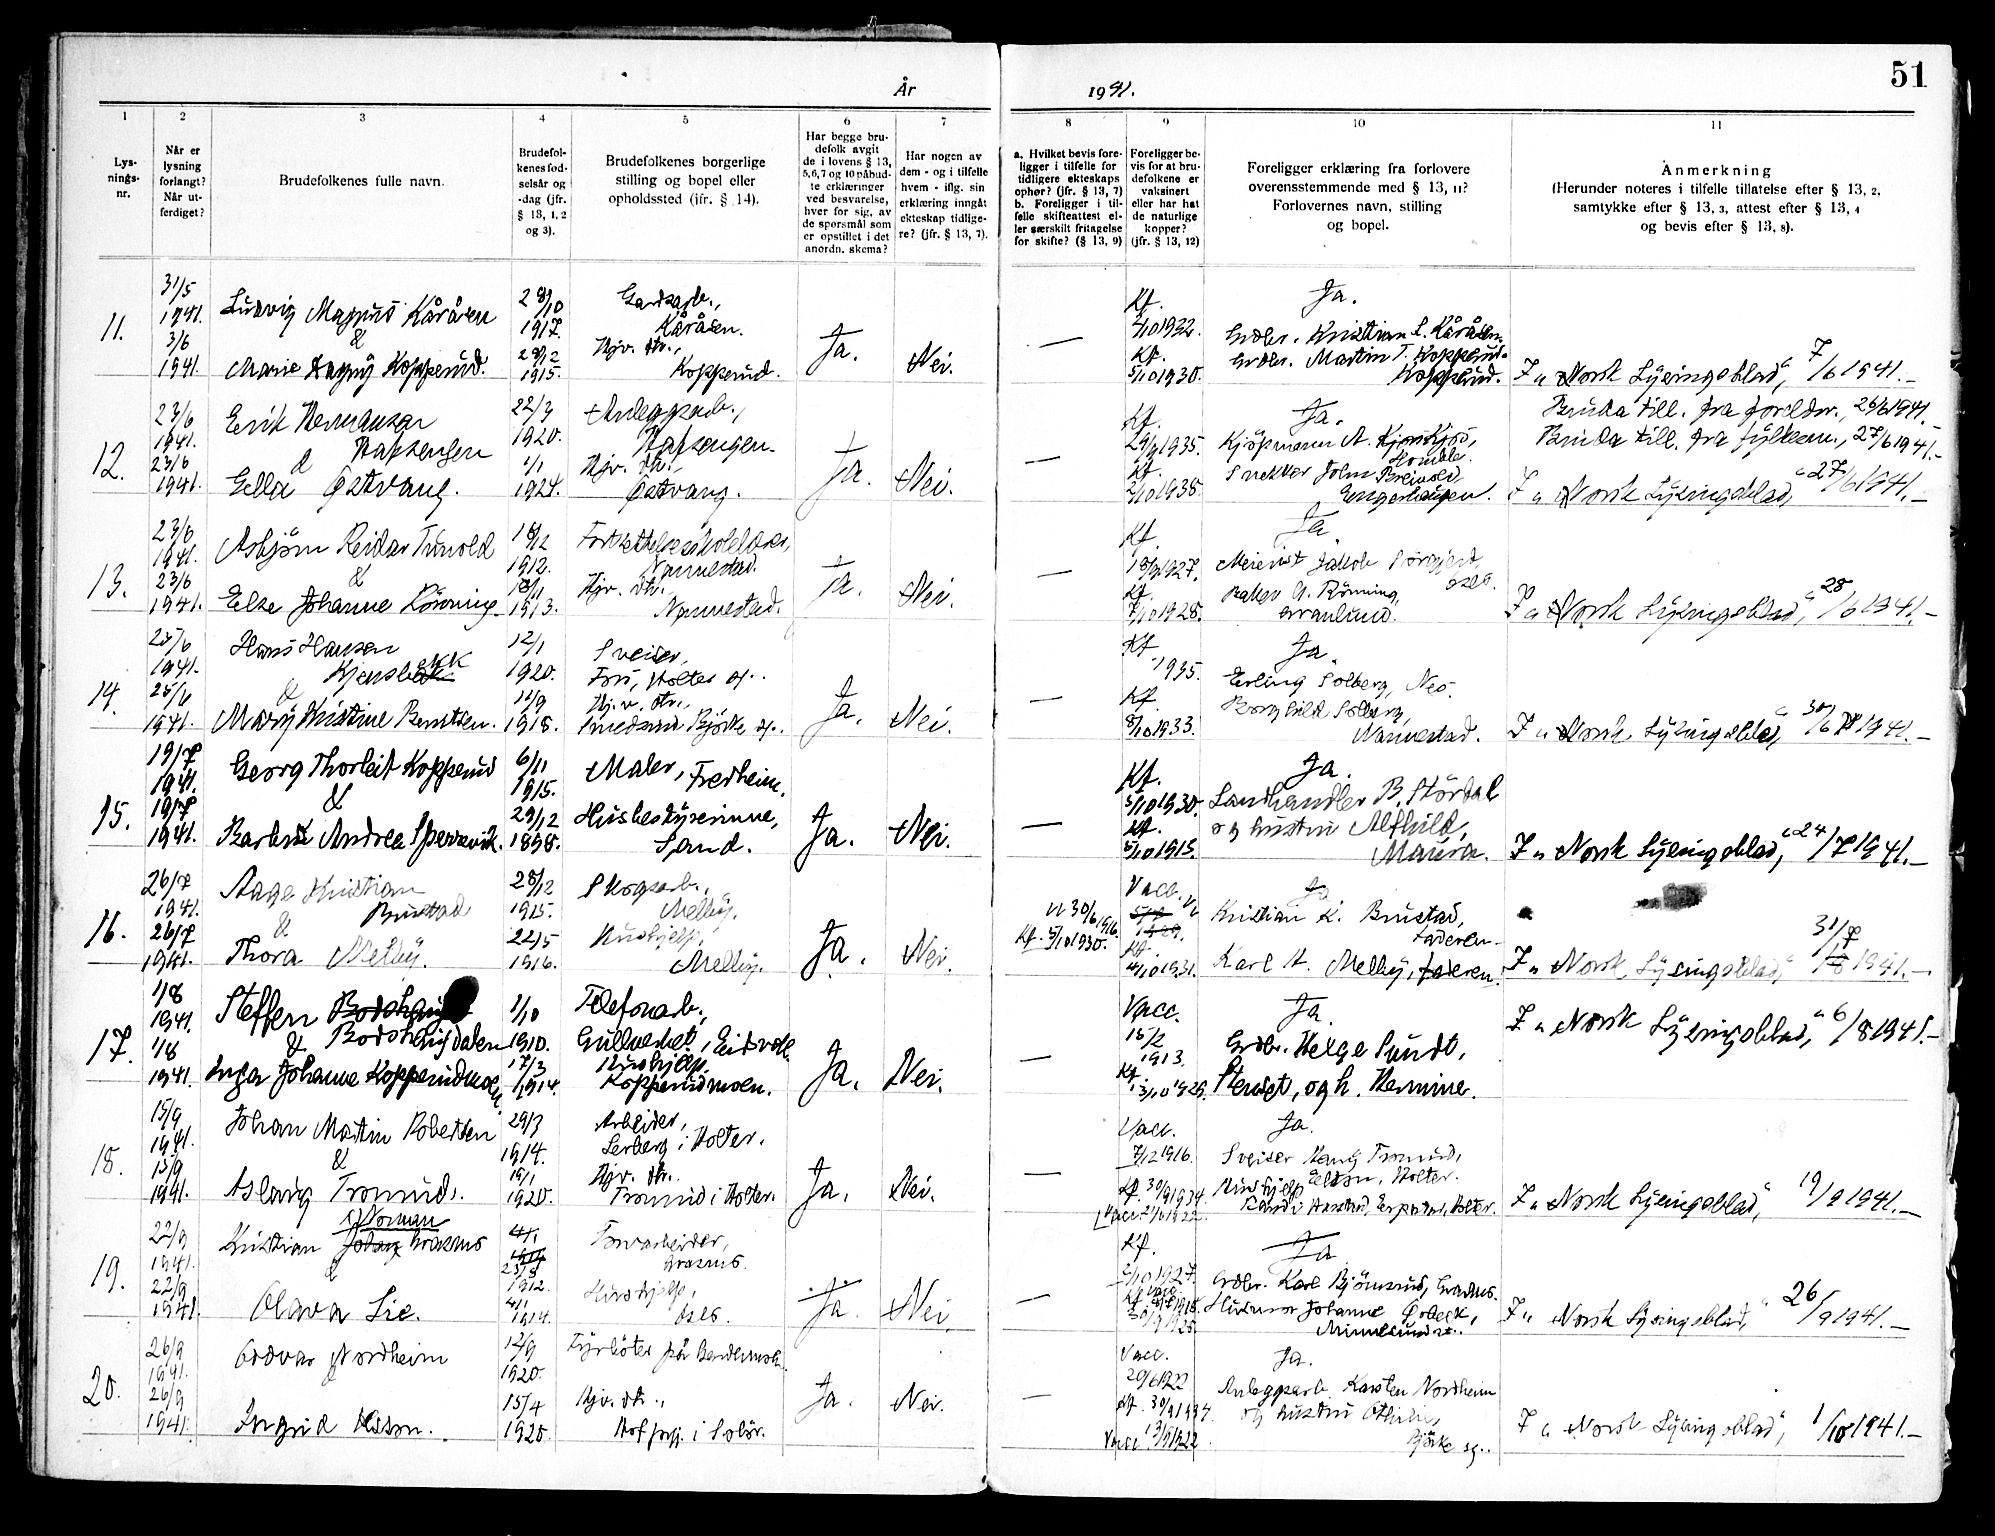 51
År
1941.
1
2
3
4
5
6
7
8
9
10
11
Lys-
nings-
nr.
Når er
lysning
forlangt?
Når ut-
ferdiget?
Brudefolkenes fulle navn.
Brudefol-
kenes fød-
selsår og
-dag (jfr.
§ 13, 1, 2
og 3).
Brudefolkenes borgerlige
stilling og bopel eller
opholdssted (jfr. § 14).
Har begge bru-
defolk avgit
de i lovens § 13,
5,6,7 og 10 påbud-
te erklæringer
ved besvarelse,
hver for sig, av
de spørsmål som
er opstillet i det
anordn. skema?
Har nogen av
dem - og i tilfelle
hvem - iflg. sin
erklæring inngått
ekteskap tidlige-
re? (jfr. § 13, 7).
a. Hvilket bevis fore-
ligger i tilfelle for
tidligere ekteskaps
ophør? (jfr. § 13, 7)
b. Foreligger i til-
felle skifteattest el-
ler særskilt fritagelse
for skifte? (§ 13, 9)
Foreligger be-
vis for at bru-
defolkene er
vaksinert
eller har hat
de naturlige
kopper?
(jfr. § 13, 12)
Foreligger erklæring fra forlovere
overensstemmende med § 13, 11?
Forlovernes navn, stilling
og bopel.
Anmerkning
(Herunder noteres i tilfelle tillatelse efter § 13, 2,
samtykke efter § 13, 3, attest efter § 13, 4
og bevis efter § 13, 8).
11.
31/5
1941.
3/6
1941.
Ludvig Magnus Kåråsen
&
Marie Dagny Kopperud.
28/10
1917.
28/12
1915.
Gardsarb.,
Kåråsen.
Hjv. dtr.,
Kopperud.
Ja.
Nei.
—
Kf.
2/10 1932.
Kf.
5/10 1930.
Ja.
Grdbr. Kristian L. Kåråsen.
Grdbr. Martin T. Kopperud.
Kopperud.
I „Norsk Lysingsblad", 7/6 1941.-
12.
23/6
1941.
23/6
1941.
Erik Hermansen
Hapsengen
&
Ella Østvang.
22/3
1920.
1/1
1924.
Anleggsarb.,
Hapsengen.
Hjv. dtr.,
Østvang.
Ja.
Nei.
—
Kf.
29/9 1935.
Kf.
2/10 1938.
Ja.
Kjøpmann A.
Snekker John Breivold,
Bruda till. fra foreldr., 26/6 1941.
Bruda till. fra fylkesm., 27/6 1941.-
I „Norsk Lysingsblad", 27/6 1941.-
13.
23/6
1941.
23/6
1941.
Asbjørn Reidar Trøvold
&
Else Johanne Rönning
18/12
1912.
18/11
1913.
Fortsettelsesskolelærer,
Nannestad.
Hjv. dtr.
Nannestad.
Ja.
Nei.
—
Kf.
18/9 1927.
Kf.
7/10 1928.
Ja.
Meierist Jakob
Oslo.
Baker A. Rönning,
I „Norsk Lysingsblad", 28/6 1941.-
14.
25/6
1941.
25/6
1941.
Hans Hansen
&
Mary Kristine Berntsen.
12/1
1920.
11/9
1918.
Sveiser,
Hjv. dtr.,
Ja.
Nei.
—
Kf.
1935.
Kf.
8/10 1933.
Ja.
Erling Solberg, Nes.
Borghild Solberg,
Nannestad.
I „Norsk Lysingsblad", 30/6 1941.-
15.
19/7
1941.
19/7
1941.
Georg Thorleif Kopperud
&
Andrea Sperrevik.
6/11
1915.
29/12
1898.
Maler, Fredheim.
Husbestyrerinne,
Sand.
Ja.
Nei.
—
Kf.
5/10 1930.
Kf.
5/10 1913.
Ja.
Landhandler B. Størdal
og hustru Alfhild,
Maura.
I „Norsk Lysingsblad", 24/7 1941.-
16.
26/7
1941.
26/7
1941.
Aage Kristian
Brustad
&
Thora Melby.
28/12
1915.
22/5
1916.
Skogsarb.,
Melby.
Hushjelp,
Melby.
Ja.
Nei.
30/6 1916.
Kf. 5/10 1930.
Vacc.
Kf.
4/10 1931.
Ja
Kristian K. Brustad,
Laderen.
Karl H. Melby, Laderen.
I „Norsk Lysingsblad", 31/7 1941.-
17.
1/8
1941.
1/8
1941.
Steffen
Bodshaugdalen
&
Inga Johanne Kopperudmoen.
1/10
1910.
17/3
1914.
Telefonarb.,
Gullverket, Eidsvoll.
Hushjelp,
Kopperudmoen.
Ja.
Nei.
—
Vacc.
15/2
1913.
Kf.
Ja.
Grdbr. Helge Sundt,
Stensgt, og h. Hermine.
I „Norsk Lysingsblad", 6/8 1941.-
18.
15/9
1941.
15/9
1941.
Johan Martin Robertsen
&
Aslaug Tromrud.
29/3
1914.
19/1
1920.
Arbeider,
Lerberg i Holter.
Hjv. dtr.
Tromrud i Holter.
Ja.
Nei.
—
Vacc.
7/12 1916.
Kf. 30/9 1934
Ja.
Sveiser Hans Tromrud,
Holter.
Hushjelp
I „Norsk Lysingsblad", 19/9 1941.-
19.
22/9
1941.
22/9
1941.
Norman
Kristian Johan Grasmo
&
Olava Lie.
23/8
1912.
4/1
1914.
Grasmo.
Hushjelp,
Oslo.
Ja.
Nei.
—
Kf.
2/10 1927.
Ja
Grdbr. Karl Bjömsrud, Grasmo.
Husmor Johanne Ørbeck,
Minnesund st..
I „Norsk Lysingsblad", 26/9 1941.-
20.
26/9
1941.
26/9
1941.
Oddvar Nordheim
&
Ingrid Olsson.
12/9
1920.
15/4
1920.
Fyrböter på
Hjv. dtr.,
Hof prgj. i Solør.
Ja.
Nei.
—
Vacc.
20/6 1922
Kf. 30/9 1934.
Vacc 13/9 1922
Ja.
Anleggsarb. Karsten Nordheim
og hustru Othilie,
Bjørke sg..
I „Norsk Lysingsblad", 1/10 1941.-